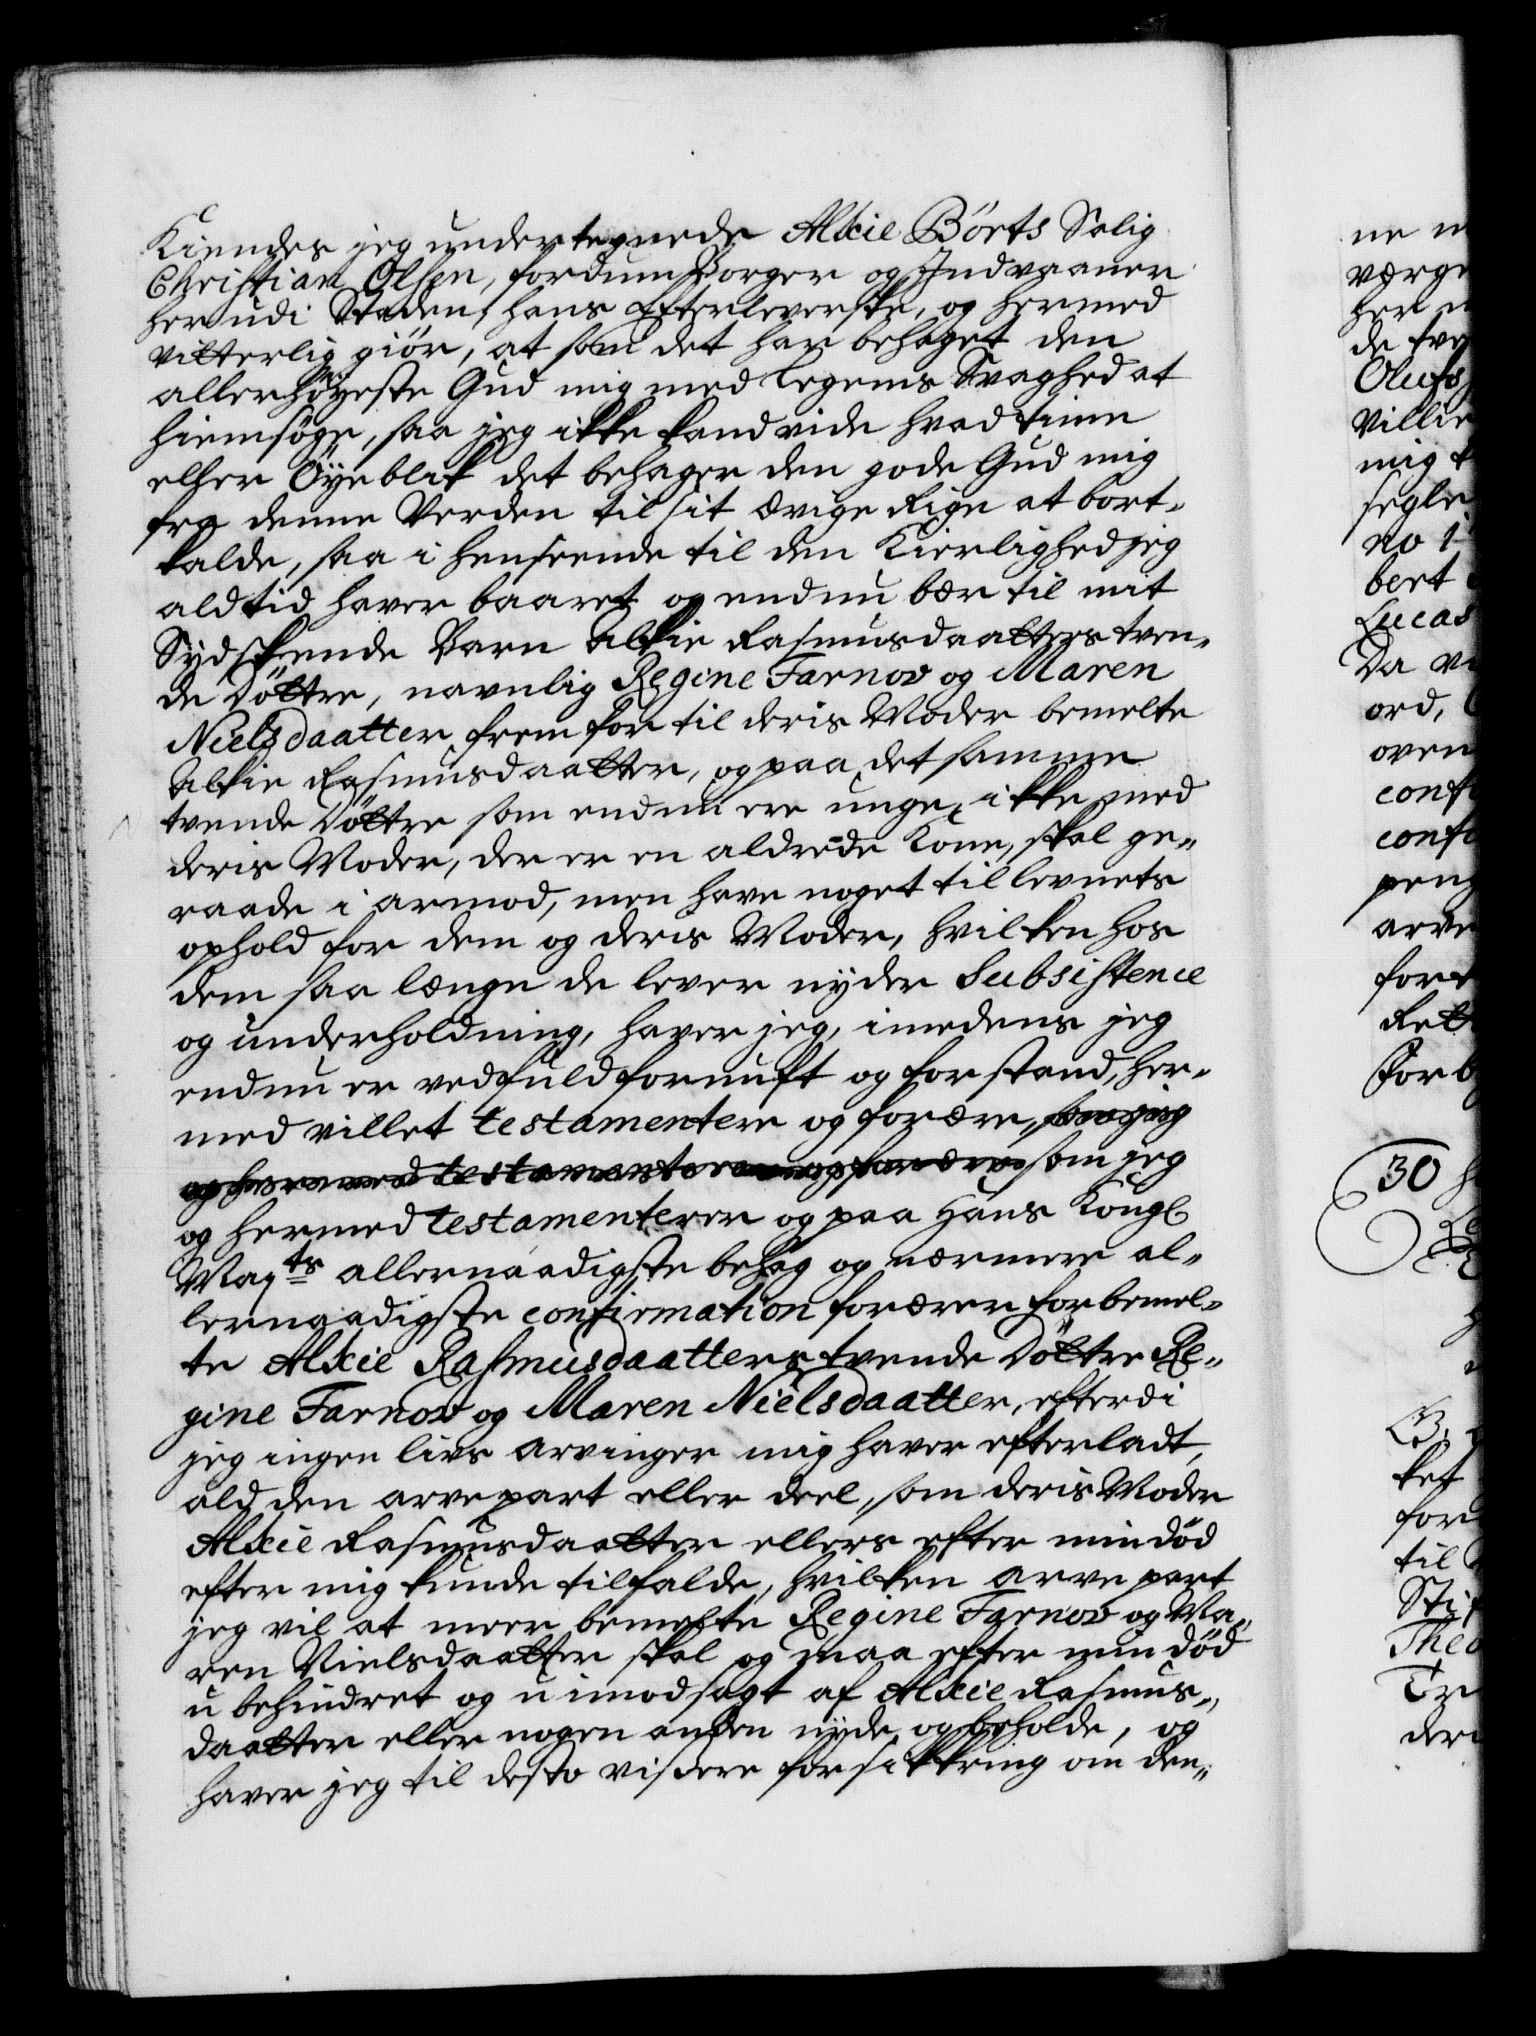 Kiendes jeg undertegnede Alkie Börts Salig
Christian Olsen, fordum Borger og Indvaaner
her udi Staden, hans Efterleverske, og hermed
vitterlig giör, at som det har behaget den
allerhöyeste Gud mig med legems Svaghed at
hiemsöge, saa jeg ikke kand vide hvad time
eller Öyeblik det behager den gode Gud mig
fra denne Verden til sit ævige Rige at bort-
kalde, saa i henseende til den Kierlighed jeg
aldtid haver baaret og endnu bær til mit
Sydskende Barn Alkie Rasmusdaatters tven-
de Döttre, navnlig Regine Farnov og Maren
Nielsdaatter frem for til deris Moder bemelte
Alkie Rasmusdaatter, og paa det samme
tvende Döttre som endnu ere unge, ikke med
deris Moder, der er en aldrede Kone, skal ge-
raade i armod, men have noget til levnets
ophold for dem og deris Moder, hvilken hos
dem saa længe de lever nyder Subsistence
og underholdning, haver jeg, imedens jeg
endnu er ved fuld fornuft og forstand, her-
med villet testamentere og forære, som jeg
og hermed testamenterer og forærer som jeg
og hermed testamenterer og paa Hans Kongl
Mayts allernaadigste behag og nærmere al-
lernaadigste confirmation forærer forbemel-
te Alkie Rasmusdaatters tvende Döttre Re-
gine Farnov og Maren Nielsdaatter, efterdi
jeg ingen livs arvinger mig haver efterladt,
ald den arvepart eller deel, som deris Moder
Alkie Rasmusdaatter ellers efter min död
efter mig kunde tilfalde, hvilken arve part
jeg vil at meer bemelte Regine Farnov og Ma-
ren Nielsdaatter skal og maa efter min död
u behindret og u imodsagt af Alkie Rasmus-
daatter eller nogen anden nyde og beholde, og
haver jeg til desto vissere forsikkring om den-
værge
her
Olufs
Villie
mig
segle
no 1
bert
Lucas
Da
ord,
oven
conf
conf
peng
arve
for
Rett
For
30
ket
for
til